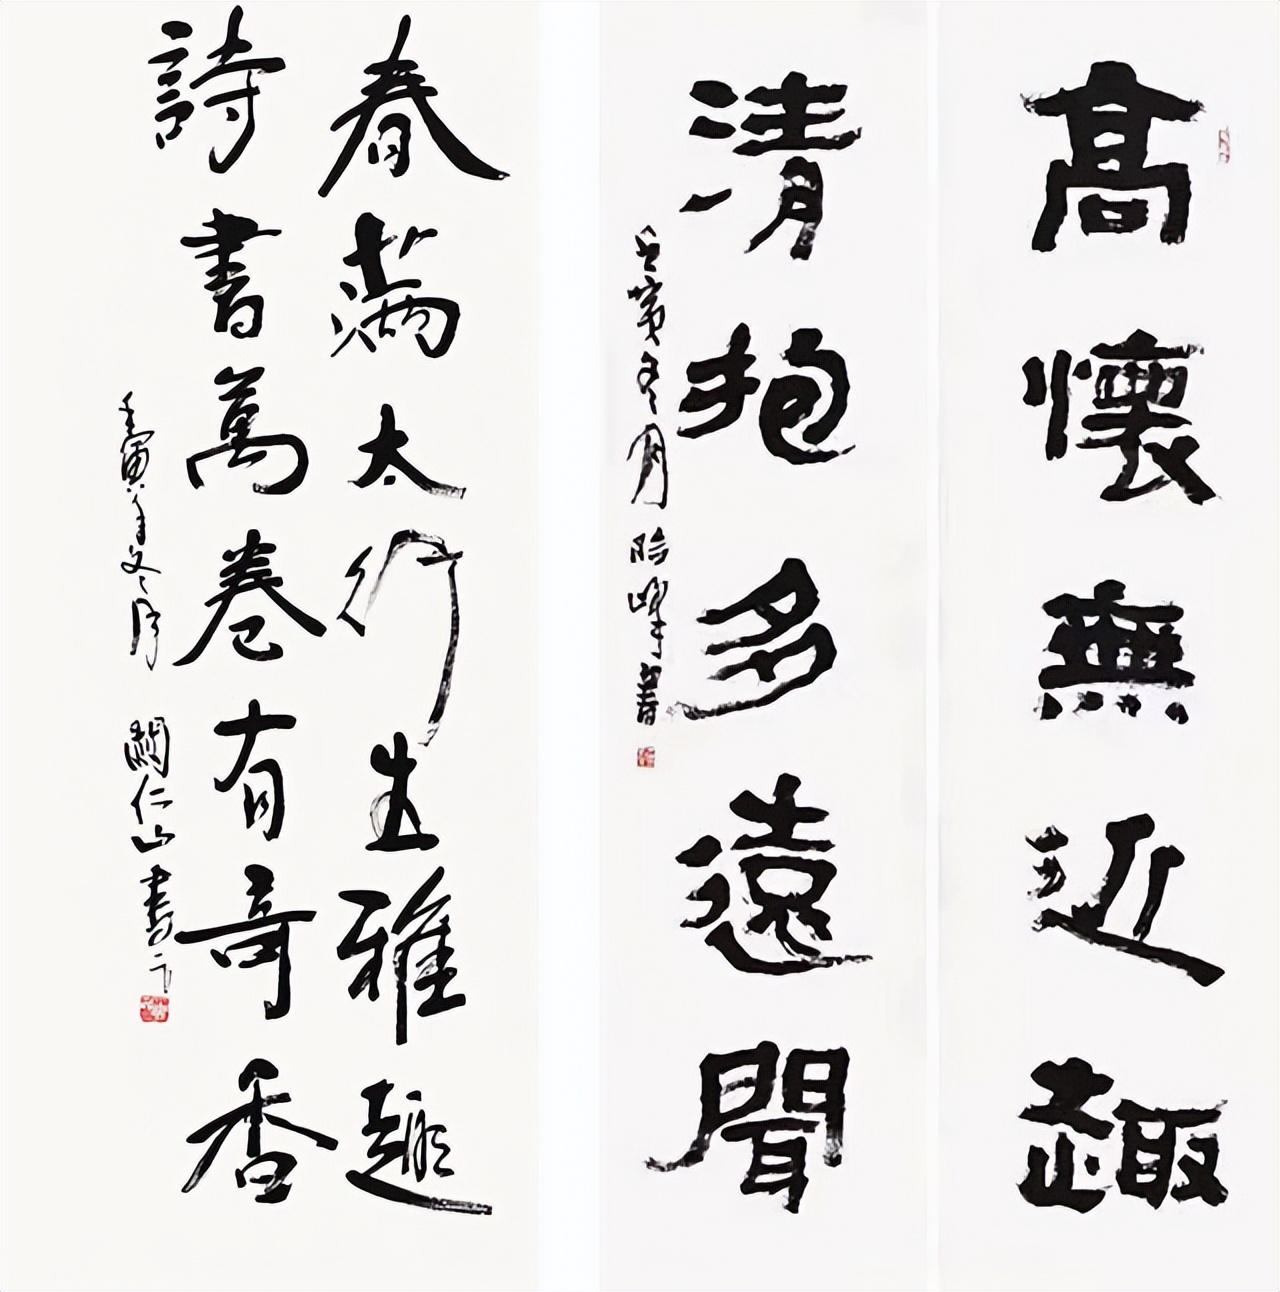 高懷無近趣
清抱多遠聞
壬寅冬月 貽峰書
春滿太行生雅趣
詩書萬卷有奇香
壬寅年冬月 關仁山書